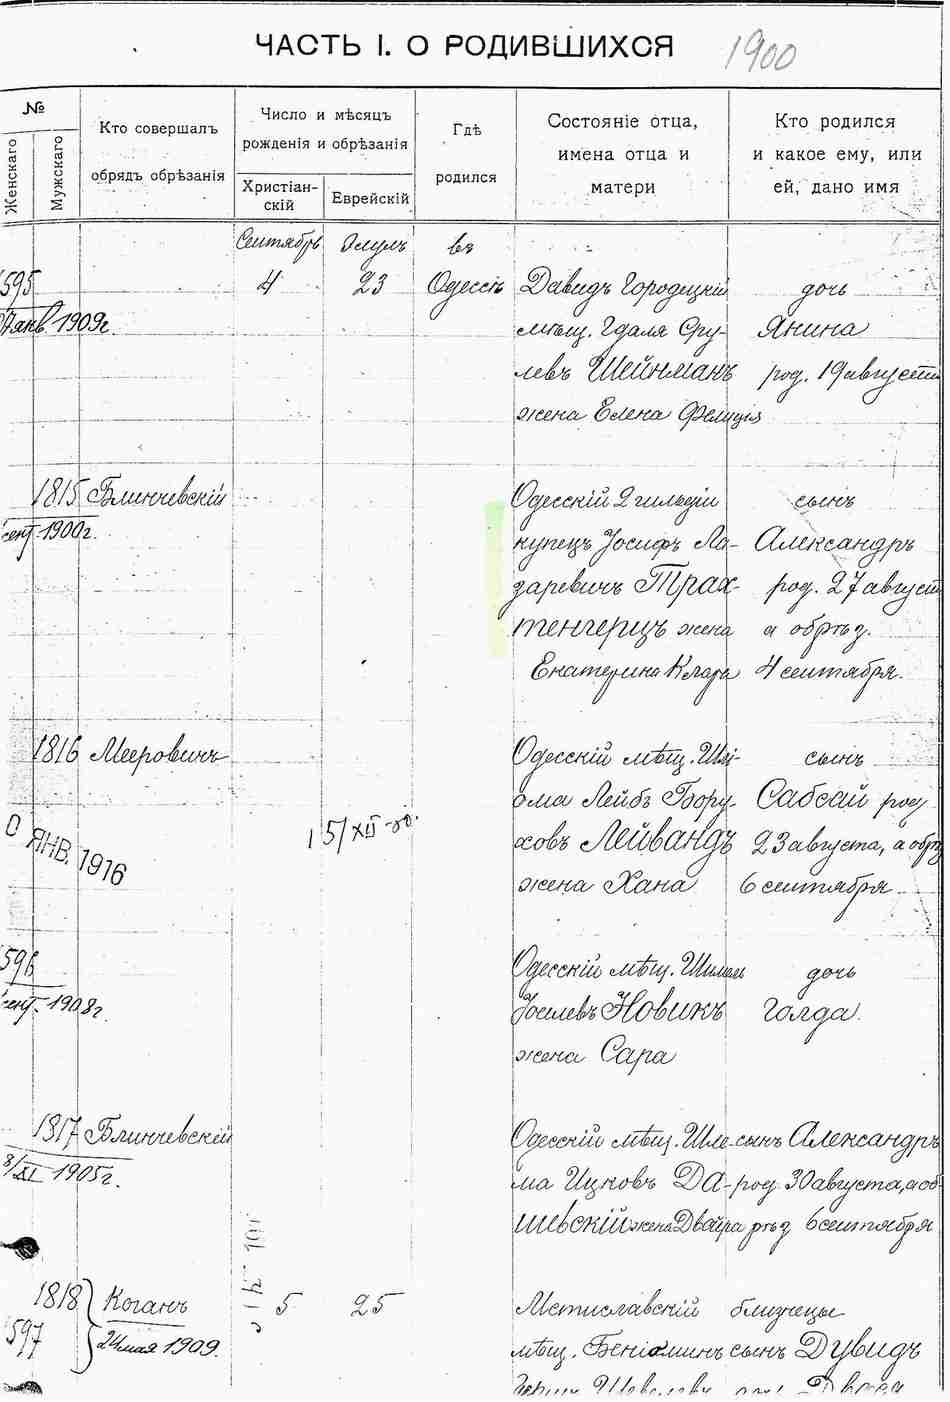 ЧАСТЬ I. О РОДИВШИХСЯ 1900
№
Женскаго
Мужскаго
Кто совершалъ
обрядъ обрѣзанія
Число и мѣсяцъ
рожденія и обрѣзанія
Христіан-
скій
Еврейскій
Гдѣ
родился
Состояніе отца,
имена отца и
матери
Кто родился
и какое ему, или
ей, дано имя
Сентябрь Элулъ въ
595 4 23 Одессѣ Давидъ Городецкій дочь
янв. 1909г. мѣщ. Гдаля Сру- Янина
левъ Шейнманъ род. 19 августа
жена Елена Фелиція
1815 Блинчевскій Одесскій 2 гильдіи сынъ
сент. 1900г. купецъ Іосифъ Ла- Александръ
заревичъ Трах- род. 27 август
тенгерцъ жена а обрѣз.
Екатерина Клара 4 сентября.
1816 Мееровичъ Одесскій мѣщ. Шлi- сынъ
ома Лейбъ Бору- Сабсай род
ховъ Лейвандъ 23 августа, а обрѣз
15/XII
0 ЯНВ. 1916
жена Хана 6 сентября
596 Одесскій мѣщ. дочь
сент. 1908г. Іоселевъ Новикъ Голда
жена Сара
1817 Блинчевскій Одесскій мѣщ. Шле- сынъ Александръ
8/XI 1905г. ма Ицковъ Да- род 30 августа, а об-
шевскій жена Двойра рѣз 6 сентября
1818 Коганъ 5 25 Мстиславскій близнецы
597 24 мая 1909. мѣщ. Беніаминъ сынъ Дувидъ